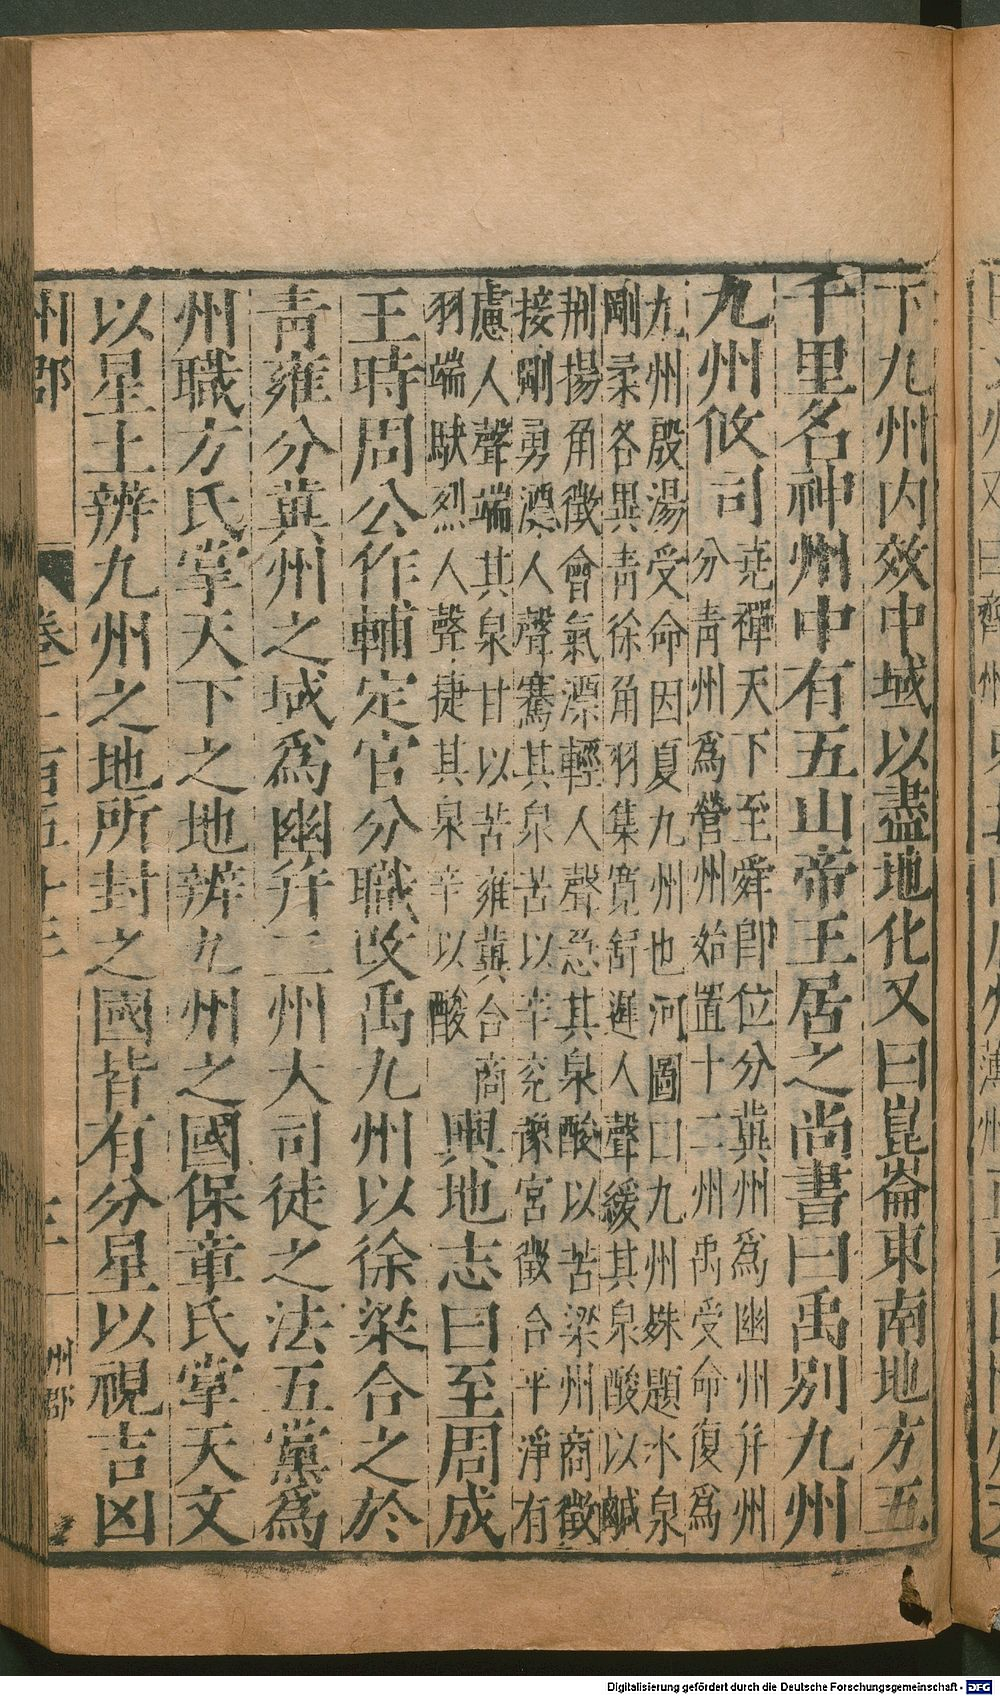 下九州内效中域以盡地化又曰崑崙東南地方五
千里名神州中有五山帝王居之尚書曰禹别九州
九州攸司
堯禪天下至舜即位分冀州爲幽州并州
分青州爲營州始置十二州禹受命復爲
九州殷湯受命因夏九州也河圖曰九州殊題水泉
剛柔各異青徐角羽集寬舒遲人聲緩其泉酸以鹹
荆揚角徵會氣漂輕人聲急其泉酸以苦梁州商徵
接剛勇漂人聲騫其泉苦以辛兖豫宮徵合平淨有
慮人聲端其泉甘以苦雍冀合商
羽端駃烈人聲捷其泉辛以酸
輿地志曰至周成
王時周公作輔定官分職改禹九州以徐梁合之於
青雍分冀州之域爲幽并二州大司徒之法五黨爲
州職方氏掌天下之地辨九州之國保章氏掌天文
以星土辨九州之地所封之國皆有分星以視吉凶
州郡
州郡
Digitalisierung gefördert durch die Deutsche Forschungsgemeinschaft - DFG